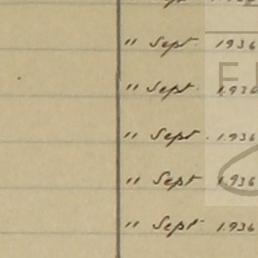 " Sept. 1936
" Sept. 1936
" Sept. 1936
" Sept 1936
" Sept 1936